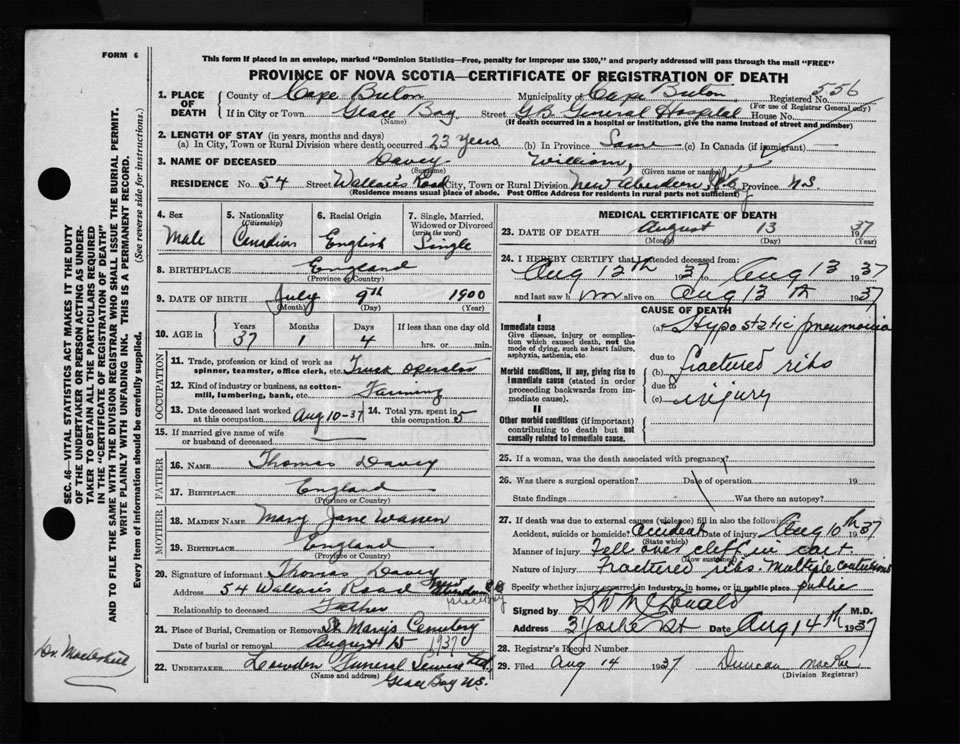 FORM 6
This form if placed in an envelope, marked "Dominion Statistics—Free, penalty for improper use $300," and properly addressed will pass through the mail "FREE"
PROVINCE OF NOVA SCOTIA—CERTIFICATE OF REGISTRATION OF DEATH
1. PLACE OF DEATH
County of Cape Breton Municipality of Cape Breton Registered No. 556
(For use of Registrar General only)
If in City or Town Glace Bay Street G.B. General Hospital House No.
(Name) (If death occurred in a hospital or institution, give the name instead of street and number)
2. LENGTH OF STAY (in years, months and days)
(a) In City, Town or Rural Division where death occurred 23 years (b) In Province Same (c) In Canada (if immigrant) —
3. NAME OF DECEASED Davey William,
(Surname) (Given name or names)
RESIDENCE No. 54 Street Road City, Town or Rural Division New Aberdeen, Province N.S.
(Residence means usual place of abode. Post Office Address for residents in rural parts not sufficient)
4. Sex Male
5. Nationality (Citizenship) Canadian
6. Racial Origin English
7. Single, Married, Widowed or Divorced (write the word) Single
8. BIRTHPLACE England
(Province or Country)
9. DATE OF BIRTH July 9th 1900
(Month) (Day) (Year)
10. AGE in Years 37 Months 1 Days 4 If less than one day old hrs. or min.
OCCUPATION
11. Trade, profession or kind of work as spinner, teamster, office clerk, etc. Truck operator
12. Kind of industry or business, as cotton-mill, lumbering, bank, etc. Farming
13. Date deceased last worked at this occupation Aug 10-37 14. Total yrs. spent in this occupation 5
15. If married give name of wife or husband of deceased —
FATHER
16. NAME Thomas Davey
17. BIRTHPLACE England
(Province or Country)
MOTHER
18. MAIDEN NAME Mary Jane Warren
19. BIRTHPLACE England
(Province or Country)
20. Signature of informant Thomas Davey
Address 54 Road New Aberdeen
Relationship to deceased Father
21. Place of Burial, Cremation or Removal St. Mary's Cemetery
Date of burial or removal August 15 1937
22. UNDERTAKER Funeral Service Ltd.
(Name and address) Glace Bay N.S.
MEDICAL CERTIFICATE OF DEATH
23. DATE OF DEATH August 13 1937
(Month) (Day) (Year)
24. I HEREBY CERTIFY that I attended deceased from:
Aug 12th 1937 to Aug 13 1937
and last saw him alive on Aug 13th 1937
CAUSE OF DEATH
I
Immediate cause
Give disease, injury or complication which caused death, not the mode of dying, such as heart failure, asphyxia, asthenia, etc.
(a) Hypostatic pneumonia
due to
Morbid conditions, if any, giving rise to immediate cause (stated in order proceeding backwards from immediate cause).
(b) fractured ribs
due to
(c) injury
II
Other morbid conditions (if important) contributing to death but not causally related to immediate cause.
25. If a woman, was the death associated with pregnancy?
26. Was there a surgical operation? Date of operation 19
State findings Was there an autopsy?
27. If death was due to external causes (violence) fill in also the following:
Accident, suicide or homicide? Accident Date of injury Aug 10th 1937
(State which)
Manner of injury Fell over cliff in cart.
(How sustained)
Nature of injury Fractured ribs. Multiple contusions
Specify whether injury occurred in industry, in home, or in public place public
Signed by McDonald M.D.
Address 3 Yorke St Date Aug 14th 1937
28. Registrar's Record Number
29. Filed Aug 14 1937 Duncan MacRae
(Division Registrar)
SEC. 46—VITAL STATISTICS ACT MAKES IT THE DUTY
OF THE UNDERTAKER OR PERSON ACTING AS UNDER-
TAKER TO OBTAIN ALL THE PARTICULARS REQUIRED
IN THE "CERTIFICATE OF REGISTRATION OF DEATH"
AND TO FILE THE SAME WITH THE DIVISION REGISTRAR WHO SHALL ISSUE THE BURIAL PERMIT.
WRITE PLAINLY WITH UNFADING INK. THIS IS A PERMANENT RECORD.
Every item of information should be carefully supplied. (See reverse side for instructions.)